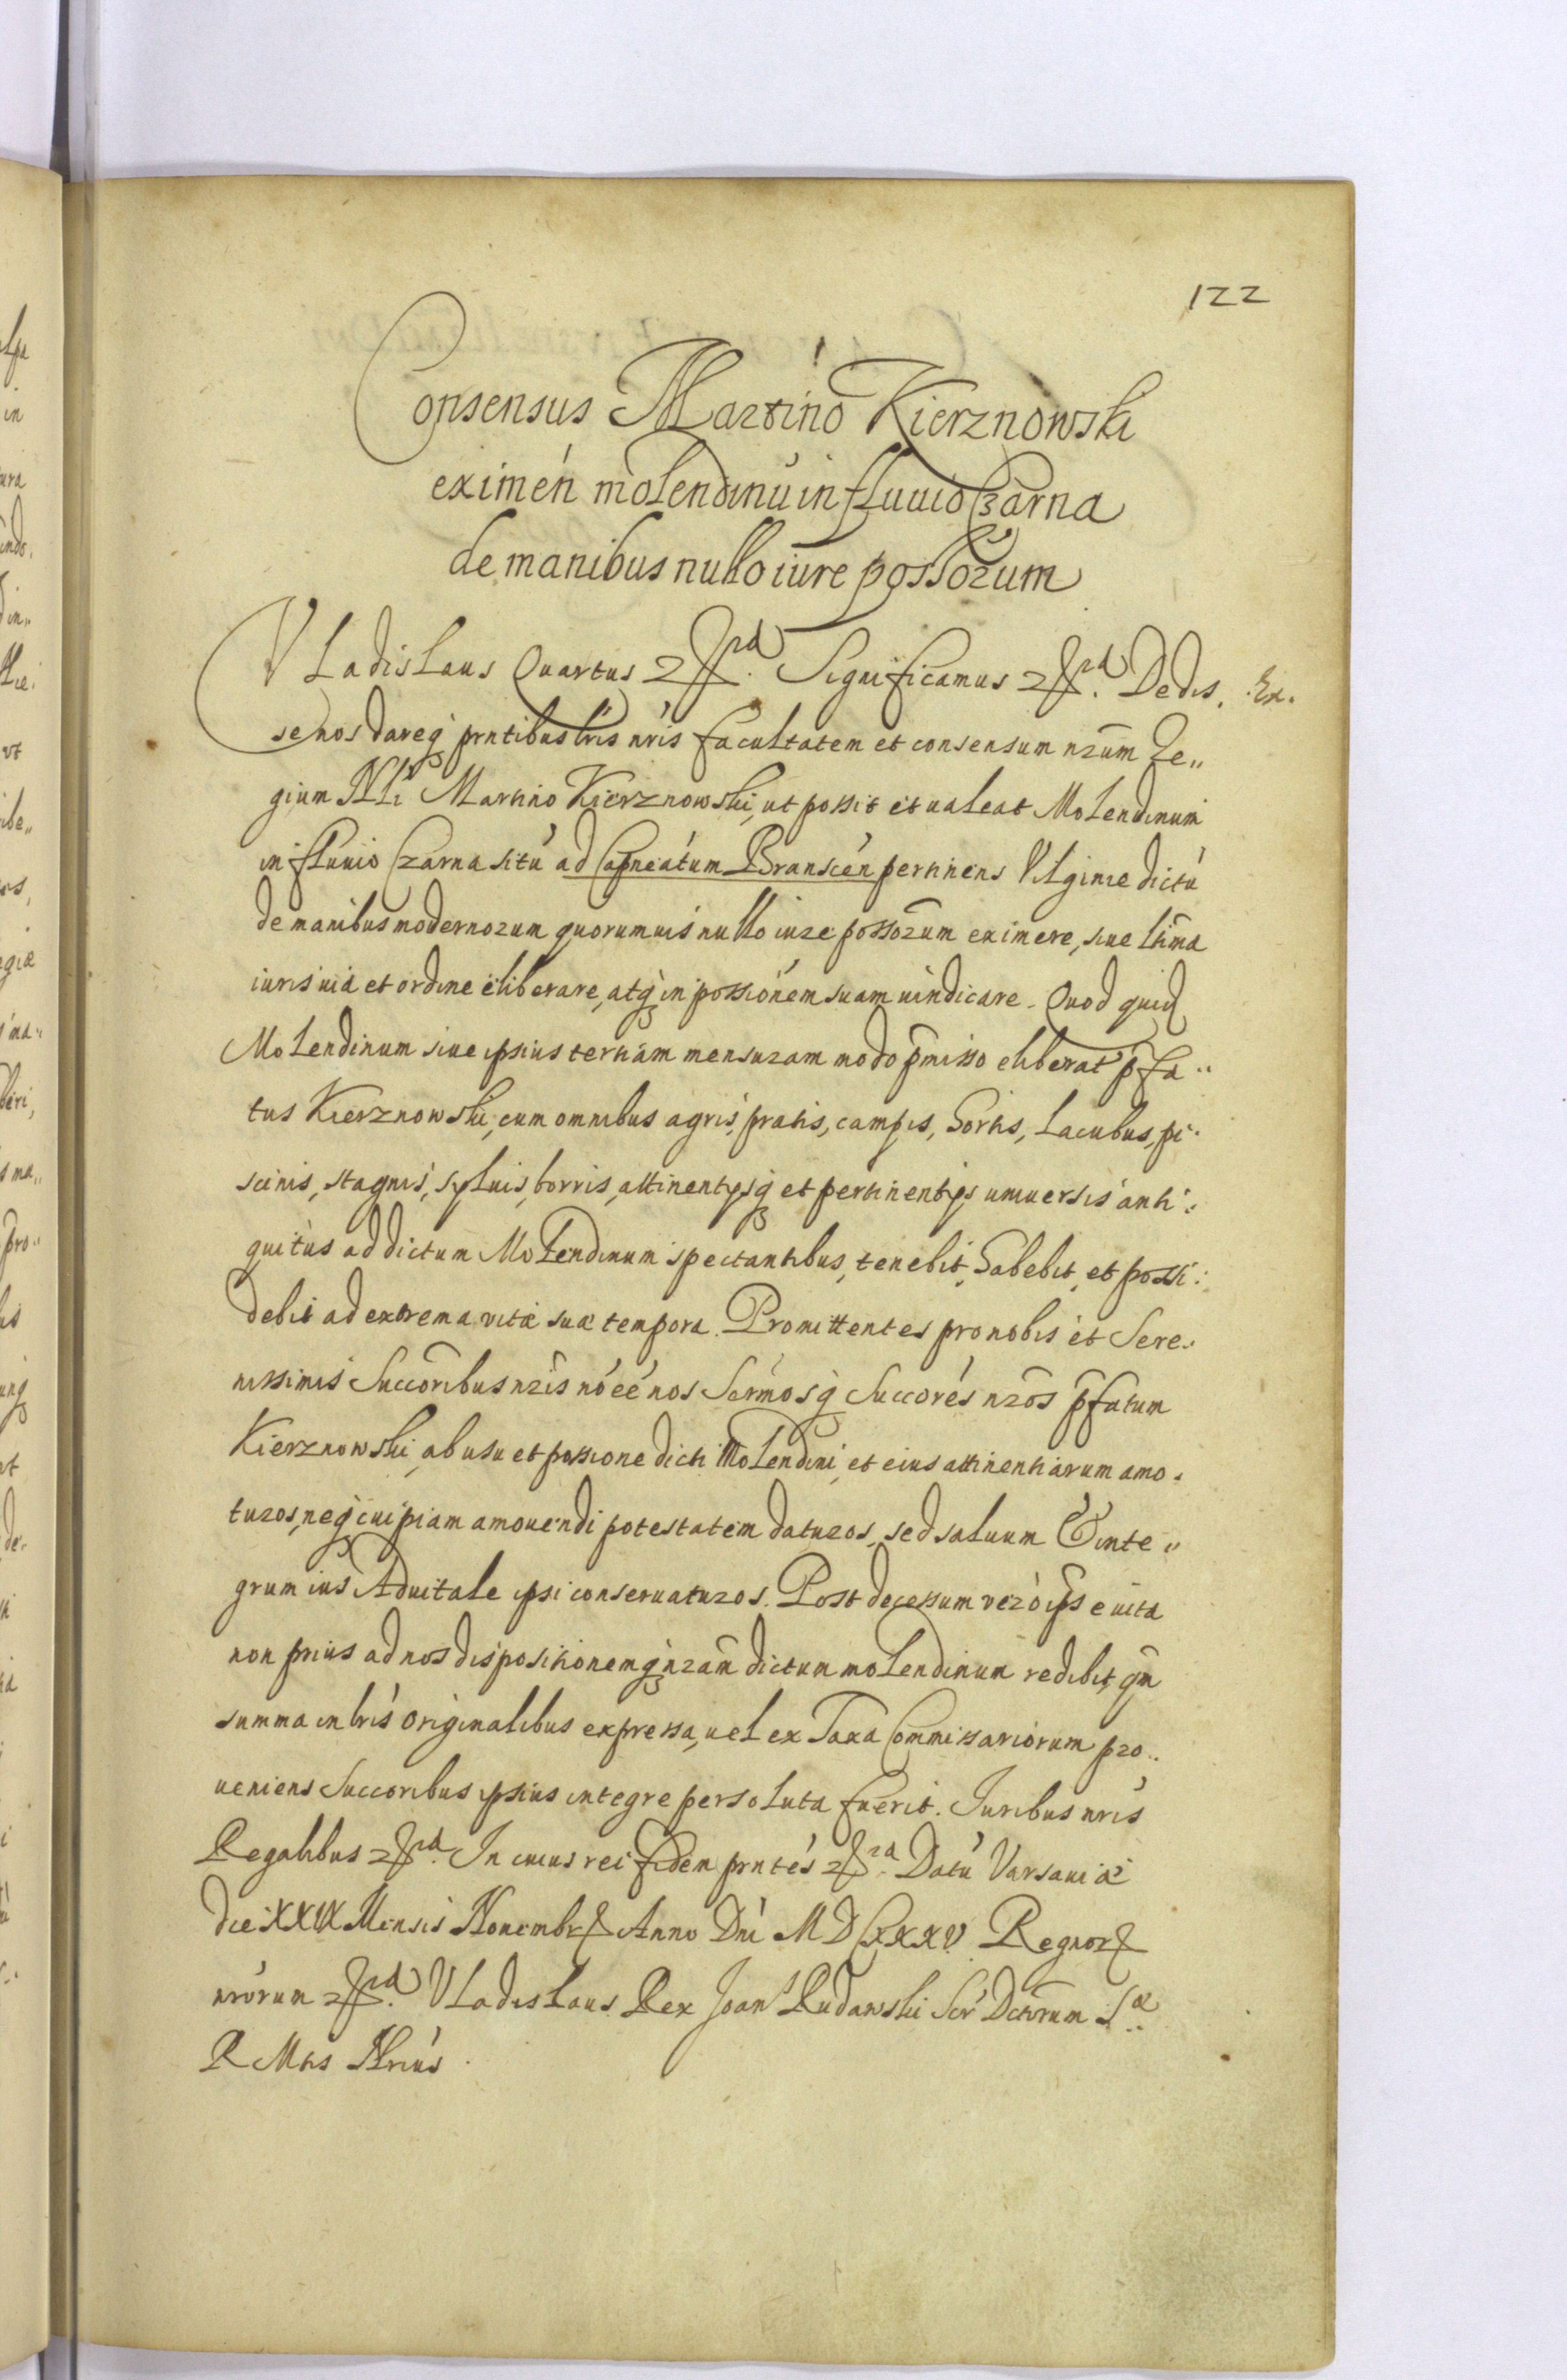 122
Consensus Martino Kierznowski
eximen̄ molendinū in fluuio Czarna
de manibus nullo iure possōrum
Vladislaus Quartus Significamus Dedis. Ex.
se nos dareq̃ prn̄tibus lrīs nr̄is facultatem et consensum nr̄um Re„
gium Martino Kierznowski, ut possit et ualeat Molendinum
in fluuio Czarna sitū ad Capneātum Branscen̄ pertinens Vilginie dictū
de manibus modernorum quorumuis nullo iure possōrum eximere, siue ltīma
iuris uia et ordine eliberare, atq̃ in possionēm suam uindicare. Quod quid
Molendinum siue ipsius tertiam mensuram modo p̄misso eliberat p̄fa„
tus Kierznowski, cum omnibus agris, pratis, campis, hortis, Lacubus, pi„
scinis, stagnis, syluis, borris, attinentijsq̃ et pertinentijs uniuersis anti„
quitus ad dictum Molendinum spectantibus, tenebit, habebit, et possi„
debit ad extrema vitæ suæ tempora. Promittentes pro nobis et Sere„
nissimis Succoribus nr̄is nō ēē nos Serm̄osq̃ Succorēs nr̄os p̄fatum
Kierznowski, ab usu et possione dicti Molendini, et eius attinentiarum amo„
turos, neq̃ cuipiam amouendi potestatem daturos, sed saluum & inte„
grum ius Aduitale ipsi conseruaturos. Post decessum verò ips̄ e uita
non prius ad nos dispositionemq̃ nr̄am dictum molendinum redibit, qm̄
summa in lrīs originalibus expressa, uel ex Taxa Commissariorum pro„
ueniens Succoribus ipsius integre persoluta fuerit. Iuribus nr̄is
Regalibus In cuius rei fidem prn̄tes Datū Varsauiæ
die XXIX Mensis Nouembr Anno Dnī MDCXXXV Regnor
nrōrum Vladislaus Rex Joan Rudawski
R Mtis